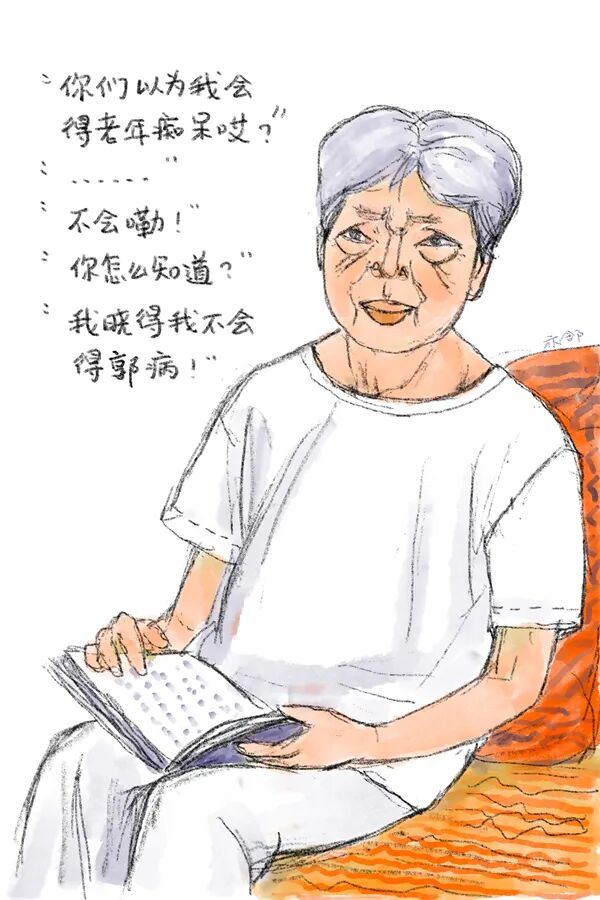 "你们以为我会
得老年痴呆哎?"
"……"
"不会嘞!"
"你怎么知道?"
"我晓得我不会
得郭病!"